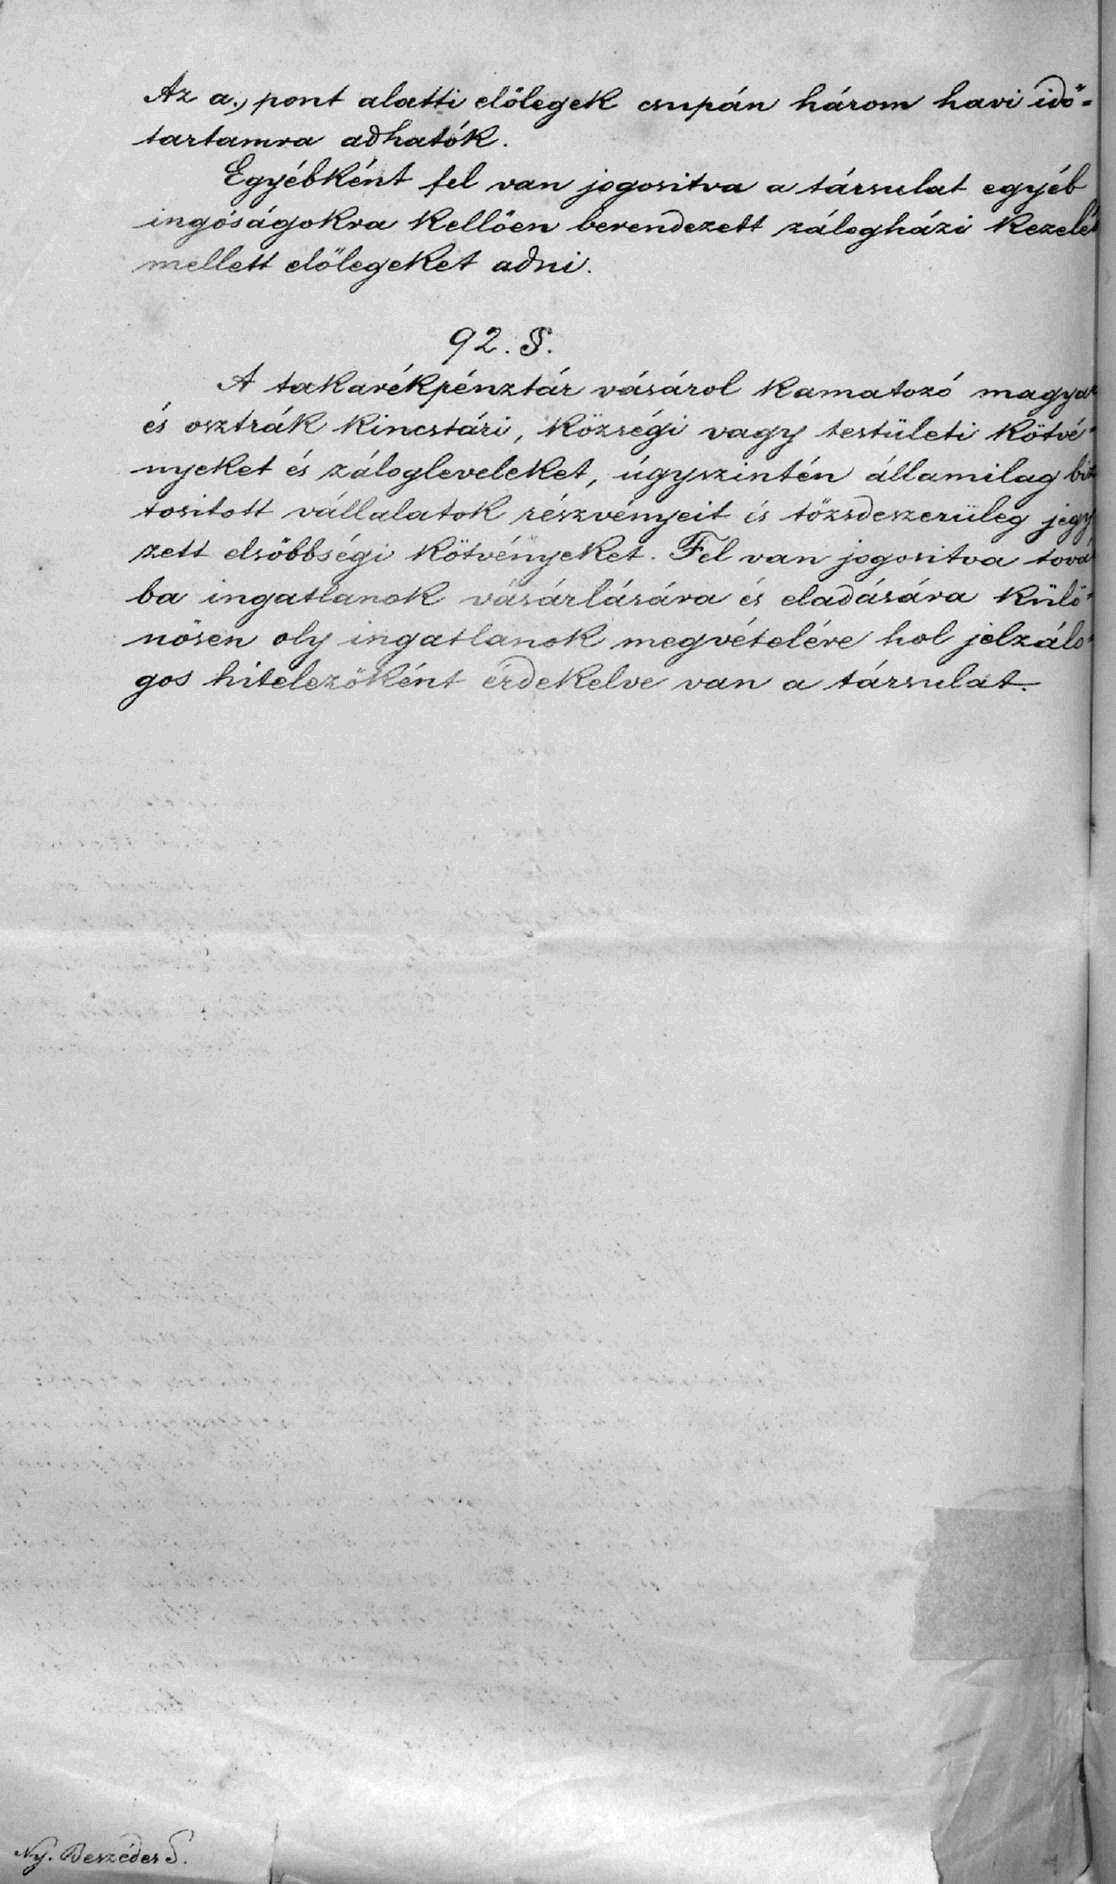 Az a., pont alatti előlegek csupán három havi idő=
tartamra adhatók.
Egyébként fel van jogositva a társulat egyéb
ingóságokra kellően berendezett zálogházi kezelés
mellett előlegeket adni.
92. §.
A takarékpénztár vásárol kamatozó magyar
és osztrák kincstári, községi vagy testületi kötvé-
nyeket és zálogleveleket, úgyszintén államilag biz
tositott vállalatok részvényeit és tőzsdeszerüleg jegy
zett elsőbbségi kötvényeket. Fel van jogositva tová
ba ingatlanok vásárlására és eladására külö-
nösen oly ingatlanok megvételére hol jelzálo-
gos hitelezőként érdekelve van a társulat.
Ny. Beszédes S.